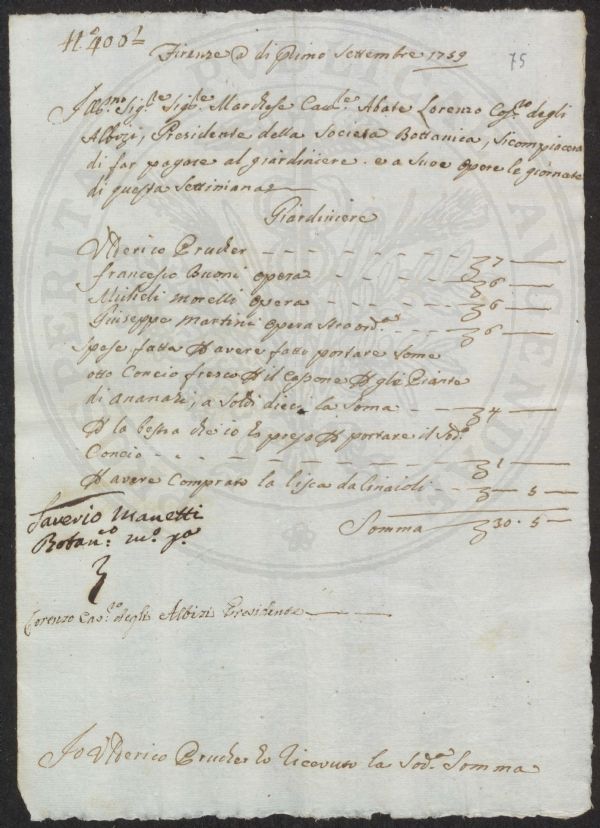 N.º 400
75
Firenze a di Primo Settembre 1759
Ill.mo Sig.re Sig.re Marchese Cav.re Abate Lorenzo degli
Albizi, Presidente della Societa Bottanica, si compiacera
di far pagare al giardiniere. e a sue opere le giornate
di questa settimana
Giardiniere
Ulderico Prucher 7
Francesco Buoni opera 6
Micheli Morelli opera 6
Giuseppe Martini opera straord.a 6
Spese fatte P avere fatto portare some
otto Concio fresco P il Cassone P gli Piante
di ananazi, a soldi dieci la soma 4
P la bestia che io ho preso P portare il Sod.o
Concio 1
P avere Comprato la lisca da linaioli — 5
Somma 30 . 5
Saverio Manetti
Botan.co m.o p.a
Lorenzo degli Albizi Presidente
Io Ulderico Prucher ho ricevuto la Sod.a Somma
PROSPERITATI PUBLICAE AUGENDAE